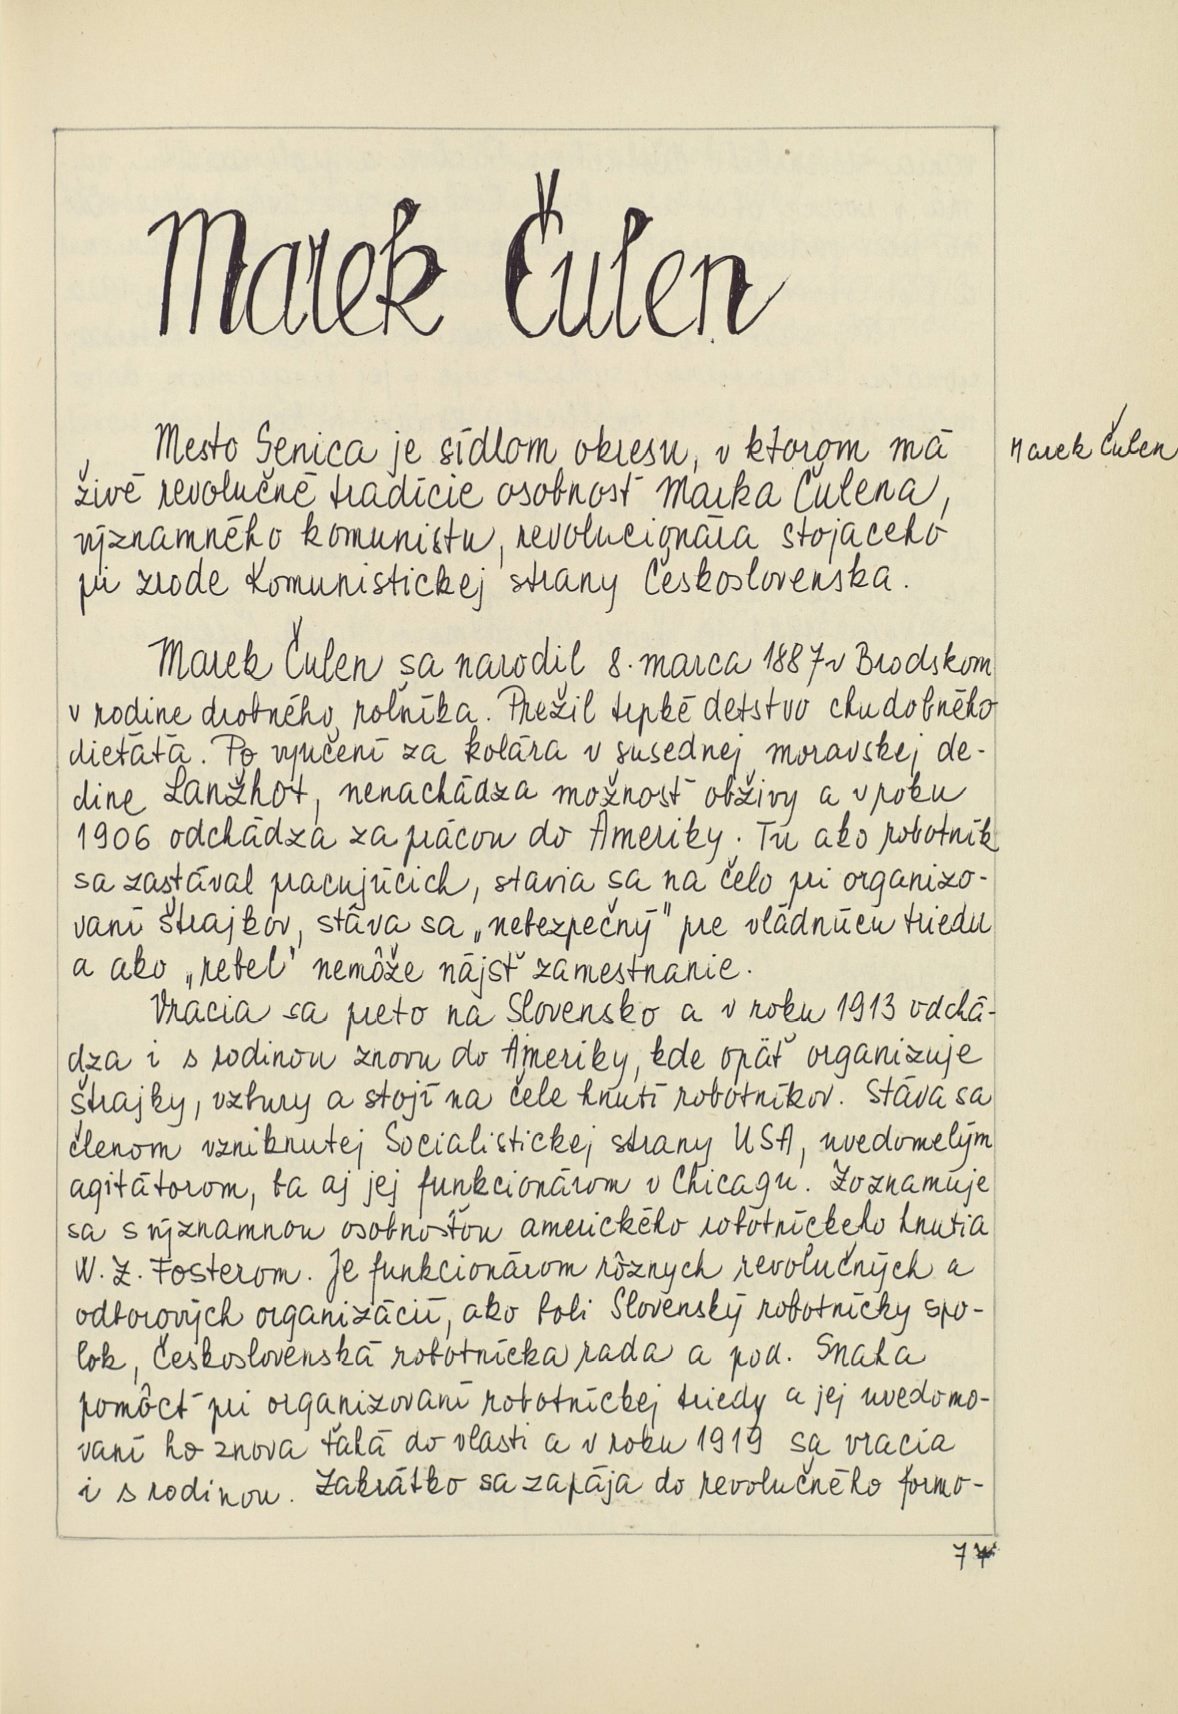 Marek Čulen
Mesto Senica je sídlom okresu, v ktorom má
Marek Čulen
živé revolučné tradície osobnosť Marka Čulena,
významného komunistu, revolucionára stojaceho
pri zrode Komunistickej strany Československa.
Marek Čulen sa narodil 8. marca 1887 v Brodskom
v rodine drobného roľníka. Prežil trpké detstvo chudobného
dieťaťa. Po vyučení za kolára v susednej moravskej de-
dine Lanžhot, nenachádza možnosť obživy a v roku
1906 odchádza za prácou do Ameriky. Tu ako robotník
sa zastával pracujúcich, stavia sa na čelo pri organizo-
vaní štrajkov, stáva sa „nebezpečný" pre vládnúcu triedu
a ako „rebel" nemôže nájsť zamestnanie.
Vracia sa preto na Slovensko a v roku 1913 odchá-
dza i s rodinou znovu do Ameriky, kde opäť organizuje
štrajky, vzbury a stojí na čele hnutí robotníkov. Stáva sa
členom vzniknutej Socialistickej strany USA, uvedomelým
agitátorom, ba aj jej funkcionárom v Chicagu. Zoznamuje
sa s významnou osobnosťou amerického robotníckeho hnutia
W. Z. Fosterom. Je funkcionárom rôznych revolučných a
odborových organizácií, ako boli Slovenský robotnícky spo-
lok, Československá robotnícka rada a pod. Snaha
pomôcť pri organizovaní robotníckej triedy a jej uvedomo-
vaní ho znova ťahá do vlasti a v roku 1919 sa vracia
i s rodinou. Zakrátko sa zapája do revolučného formo-